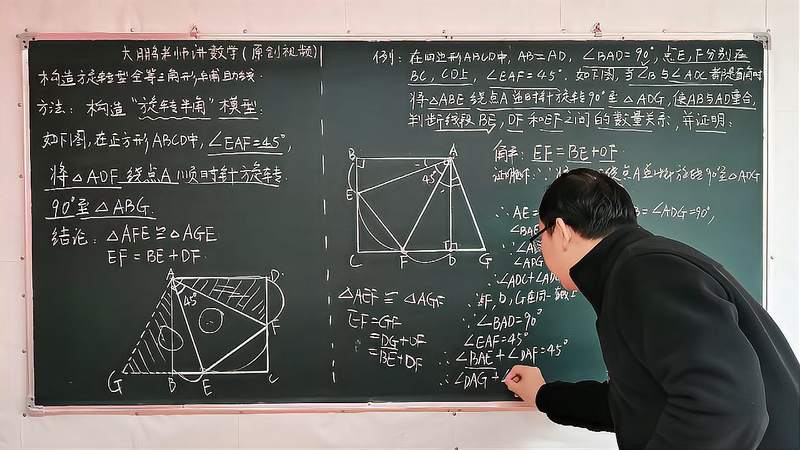 大明老师讲数学(原创视频)
构造旋转型全等三角形,作辅助线.
方法: 构造“旋转半角”模型.
如下图,在正方形ABCD中,∠EAF=45°,
将△ADF绕点A顺时针旋转
90°至△ABG.
结论: △AFE≌△AGE
EF=BE+DF.
A
D
45°
F
G
B
E
C
例: 在四边形ABCD中, AB=AD, ∠BAD=90°, 点E,F分别在
BC, CD上, ∠EAF=45°. 如下图, 当∠B与∠ADC都是直角时
将△ABE绕点A逆时针旋转90°至△ADG, 使AB与AD重合,
判断线段BE, DF和EF之间的数量关系, 并证明:
B
A
45°
E
C
F
D
G
△AEF≌△AGF
EF=GF
=DG+DF
=BE+DF
解: EF=BE+DF
证明如下: ∵将
绕点A逆时针旋转90°至△ADG
∴AE=
=∠ADG=90°,
∠BAE
∠ADG
∴∠ADC+∠AD
∴F, D, G在同一直线上
∵∠BAD=90°
∠EAF=45°
∴∠BAE+∠DAF=45°
∴∠DAG+